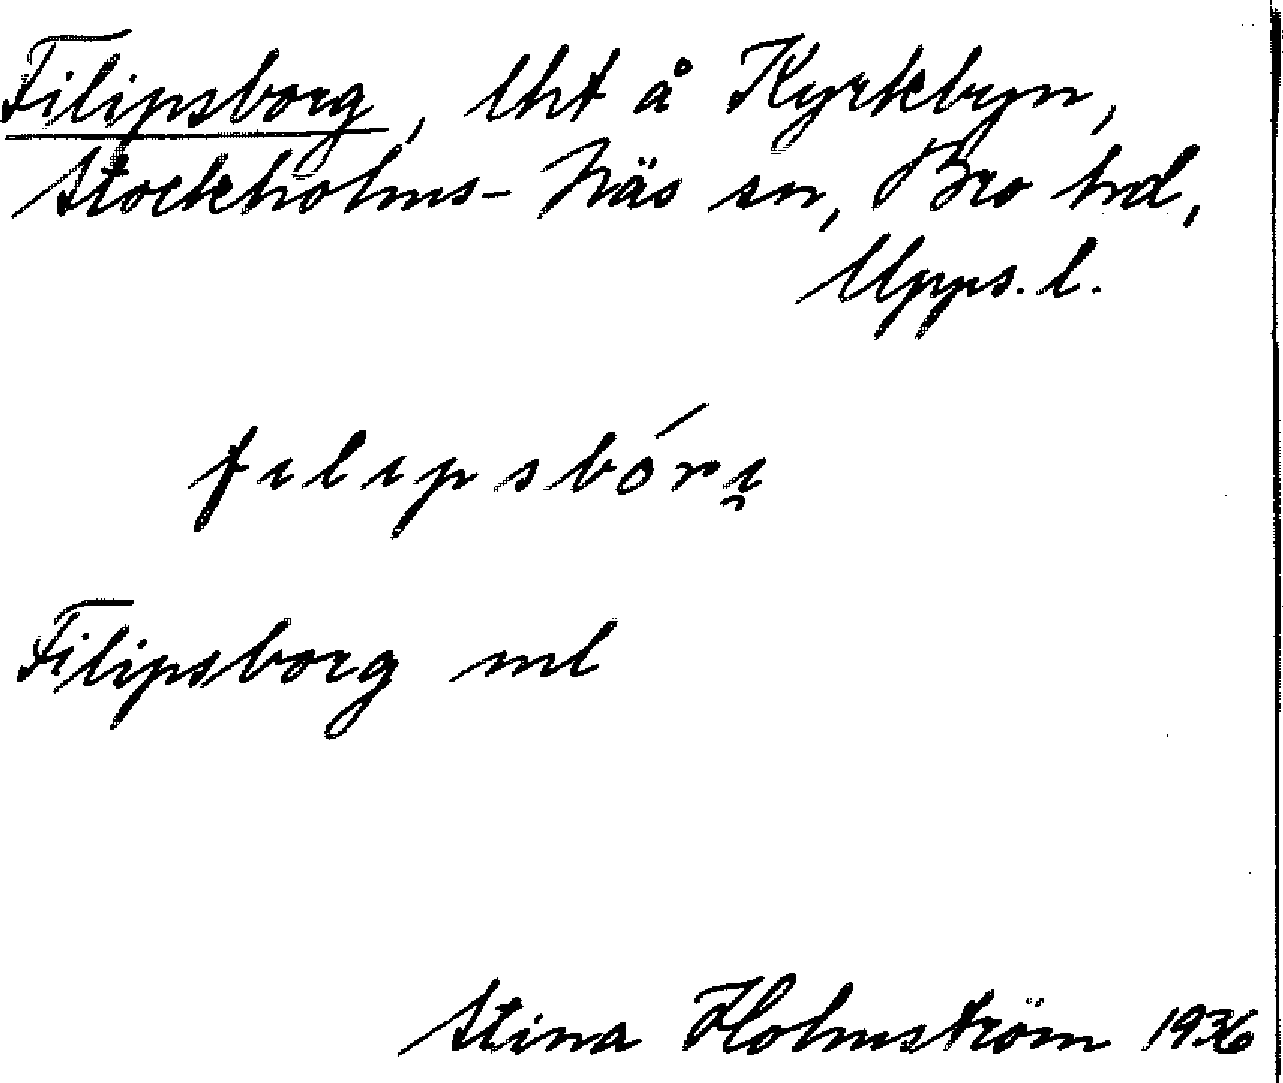 Filipsborg, lht å Kyrkbyn,
Stockholms-Näs sn, Bro hd,
Upps. l.
fılıpsbórı̯
Filipsborg ml
Stina Holmström 1936